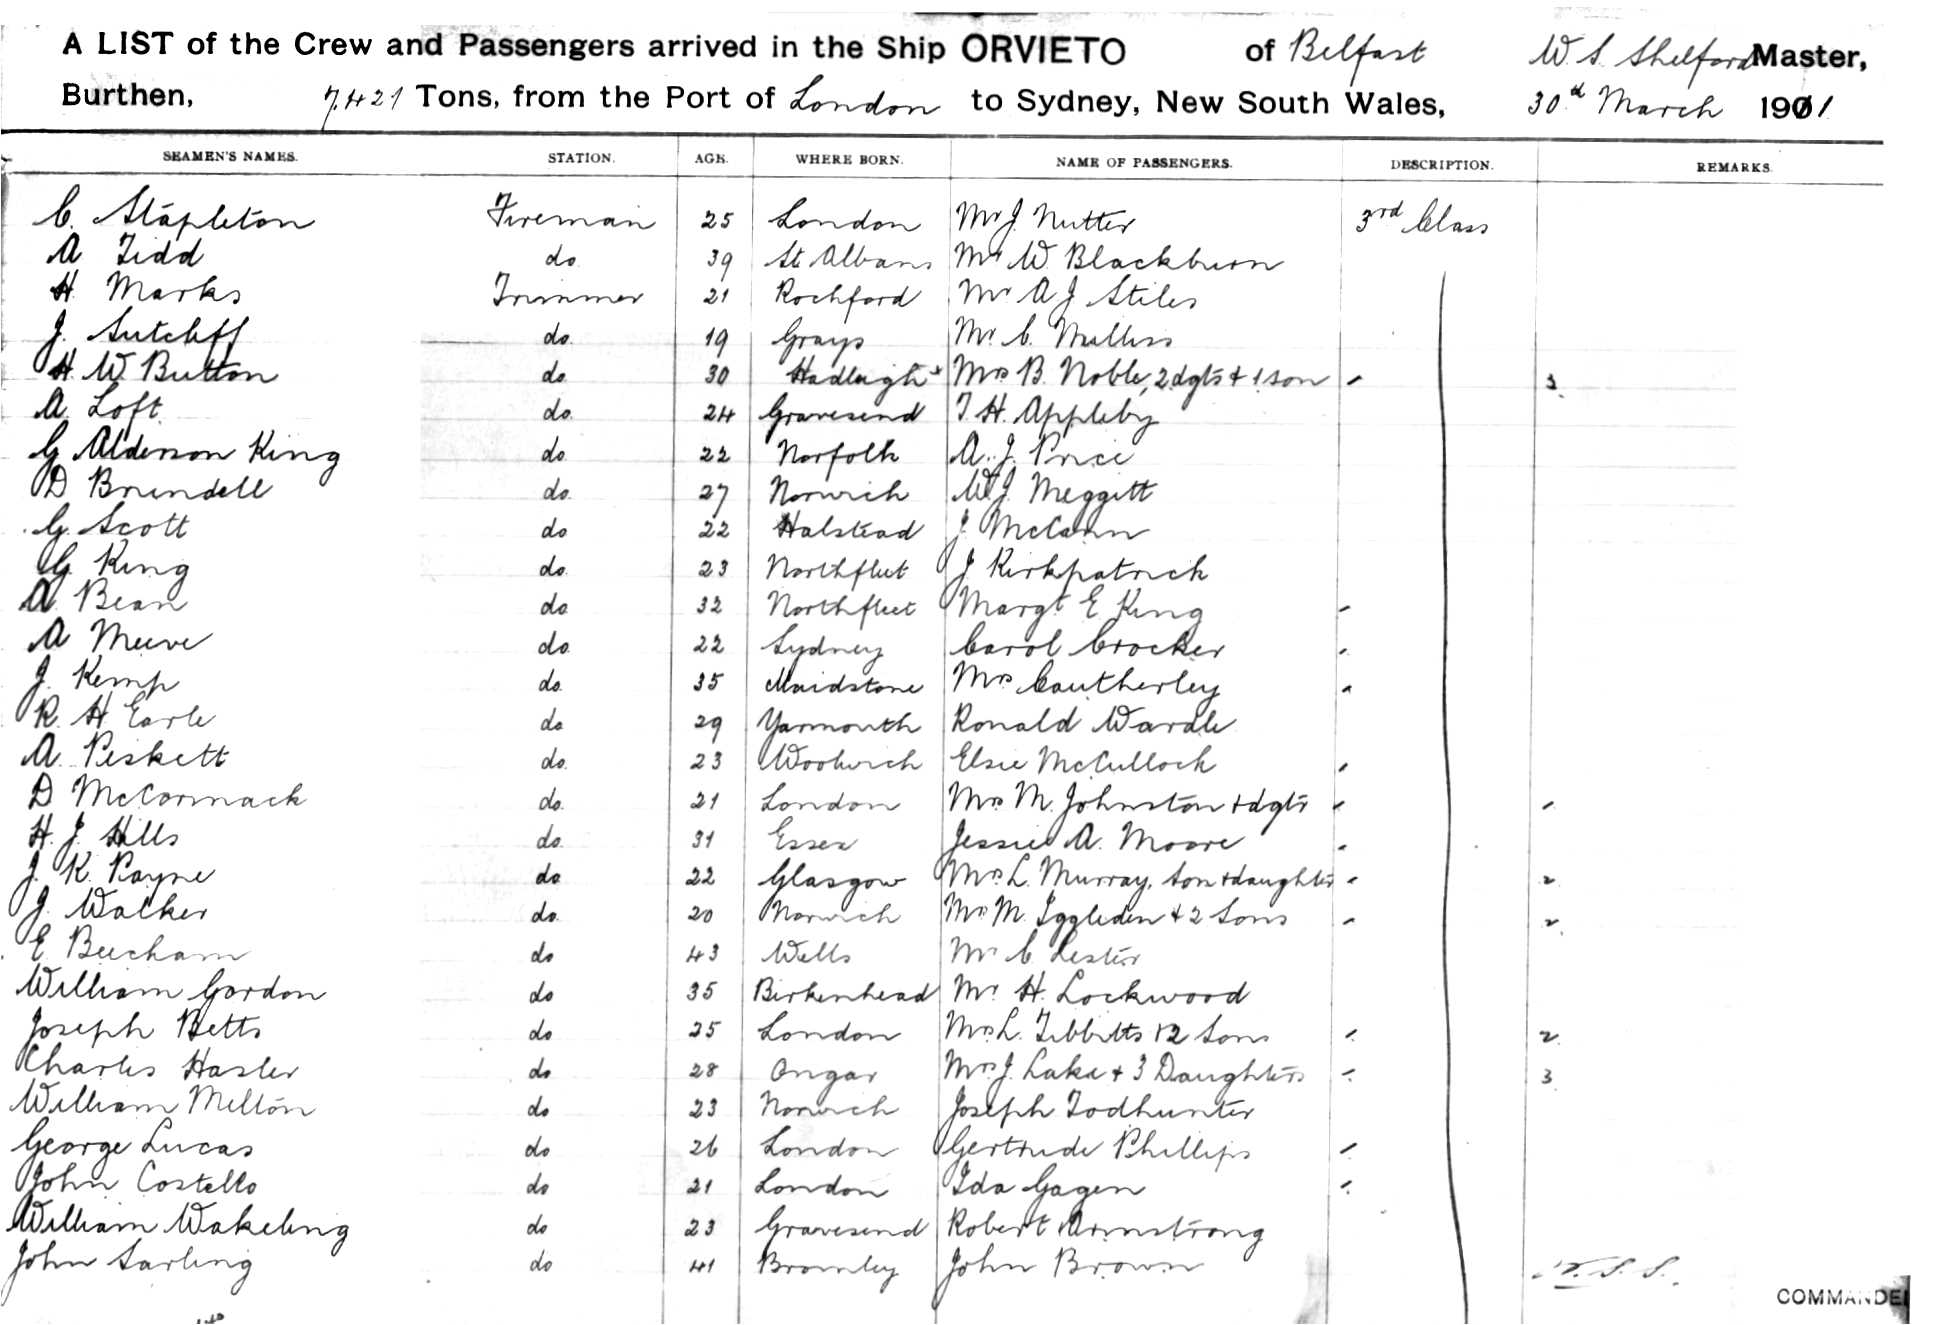 A LIST of the Crew and Passengers arrived in the Ship ORVIETO of Belfast W. S. Shelford Master,
Burthen, 7,421 Tons, from the Port of London to Sydney, New South Wales, 30th March 1911
SEAMEN'S NAMES. STATION. AGE. WHERE BORN. NAME OF PASSENGERS. DESCRIPTION. REMARKS.
C. Stapleton Fireman 25 London Mr J. Nutter 3rd Class
A Tidd do 39 St Albans Mr W. Blackburn
H Marks Trimmer 21 Rochford Mr A J Stiles
J. Sutcliff do. 19 Grays Mr. C. Mulliss
H. W. Button do. 30 Hadleigh Mrs B. Noble, 2 dgts + 1 son 3
A. Loft do. 24 Gravesend T. H. Appleby
G Alderson King do. 22 Norfolk A. J. Price
D Brundell do. 27 Norwich W J. Meggitt
G. Scott do 22 Halstead J. McCann
G. King do. 23 Northfleet J Kirkpatrick
A. Bean do 32 Northfleet Margt E King
A Meeve do. 22 Sydney Carol Crocker
J. Kemp do. 35 Maidstone Mrs Cautherley
R. H. Earle do 29 Yarmouth Ronald Wardle
A. Peskett do. 23 Woolwich Elsie McCullock
D McCormack do. 21 London Mrs M. Johnston + dgtr
H. J. Hills do. 31 Essex Jessie A. Moore
J. K. Payne do 22 Glasgow Mrs L. Murray, son + daughter 2
J. Walker do. 20 Norwich Mrs M. Iggleden + 2 Sons 2
E Beecham do 43 Wells Mr C Lester
William Gordon do 35 Birkenhead Mr H. Lockwood
Joseph Betts do 25 London Mrs L. Tibbitts + 2 Sons 2
Charles Hasler do 28 Ongar Mrs J. Lake + 3 Daughters 3
William Melton do 23 Norwich Joseph Todhunter
George Lucas do 26 London Gertrude Phillips
John Costello do 21 London Ida Gagen
William Wakeling do 23 Gravesend Robert Armstrong
John Sarling do 41 Bromley John Brown
W. S. S.
COMMANDE